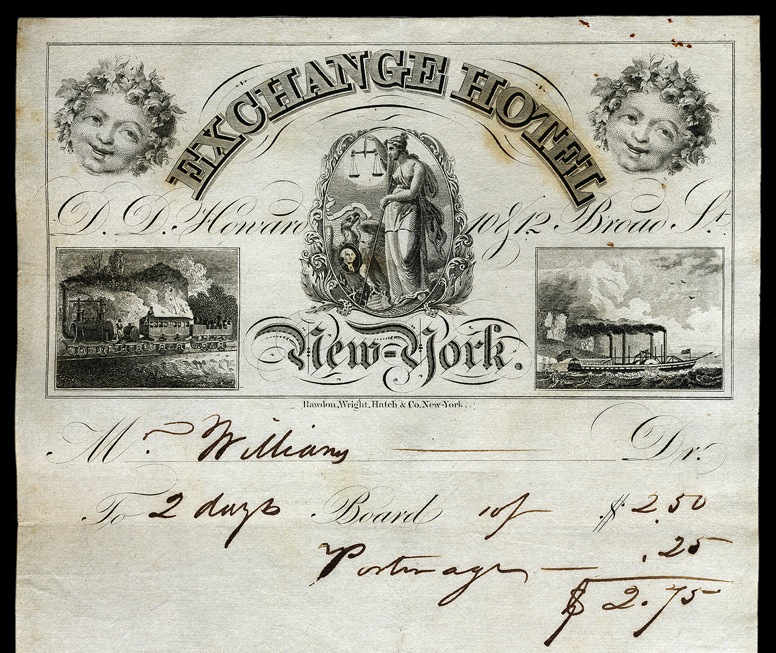 EXCHANGE HOTEL
D. D. Howard 10 & 12 Broad St.
New-York.
Rawdon, Wright, Hatch & Co. New-York.
Mr. Williams Dr.
To 2 days Board $ 2.50
.25
$ 2.75